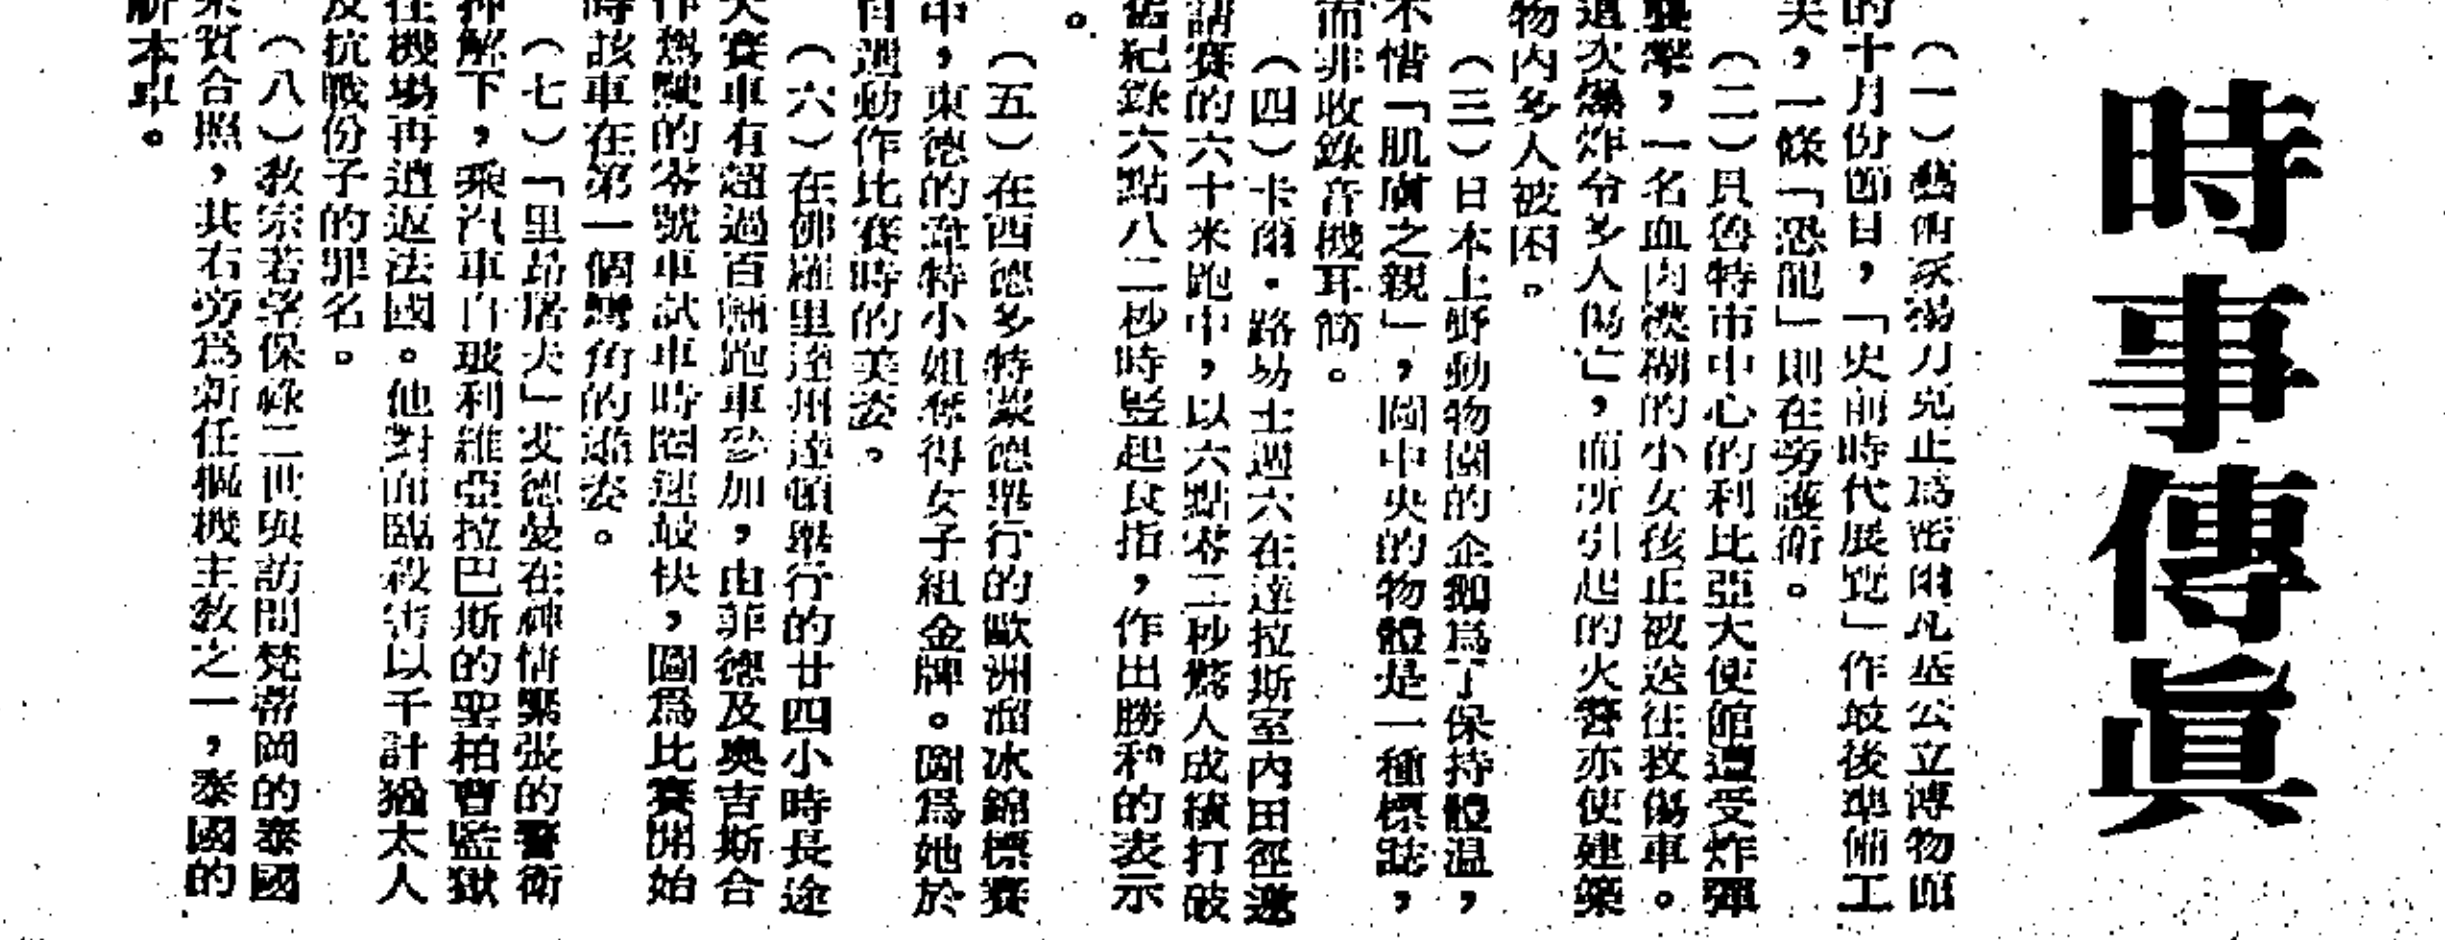 時事傳眞
（一）藝術家揚力克正爲密爾凡基公立博物館
的十月份節目，「史前時代展覽」作最後準備工
夫，一條「恐龍」則在旁護衛。
（二）貝魯特市中心的利比亞大使館遭受炸彈
襲擊，一名血肉模糊的小女孩正被送往救傷車。
這次爆炸令多人傷亡，而所引起的火警亦使建築
物內多人被困。
（三）日本上野動物園的企鵝爲了保持體温，
不惜「肌膚之親」，圖中央的物體是一種標誌，
而非收錄音機耳筒。
（四）卡爾·路易士週六在達拉斯室內田徑邀
請賽的六十米跑中，以六點零二秒驚人成績打破
舊紀錄六點八二秒時豎起食指，作出勝利的表示
。
（五）在西德多特蒙德舉行的歐洲溜冰錦標賽
中，東德的韋特小姐奪得女子組金牌。圖爲她於
自選動作比賽時的美姿。
（六）在佛羅里達州達頓舉行的廿四小時長途
大賽車有超過百輛跑車參加，由菲德及奧吉斯合
作駕駛的零號車試車時圈速最快，圖爲比賽開始
時該車在第一個彎角的雄姿。
（七）「里昂屠夫」艾德曼在神情緊張的警衛
押解下，乘汽車自玻利維亞拉巴斯的聖柏曹監獄
往機場再遣返法國。他對面臨殺害以千計猶太人
及抗戰份子的罪名。
（八）教宗若望保祿二世與訪問梵蒂岡的泰國
眾賀合照，其右旁爲新任樞機主教之一，泰國的